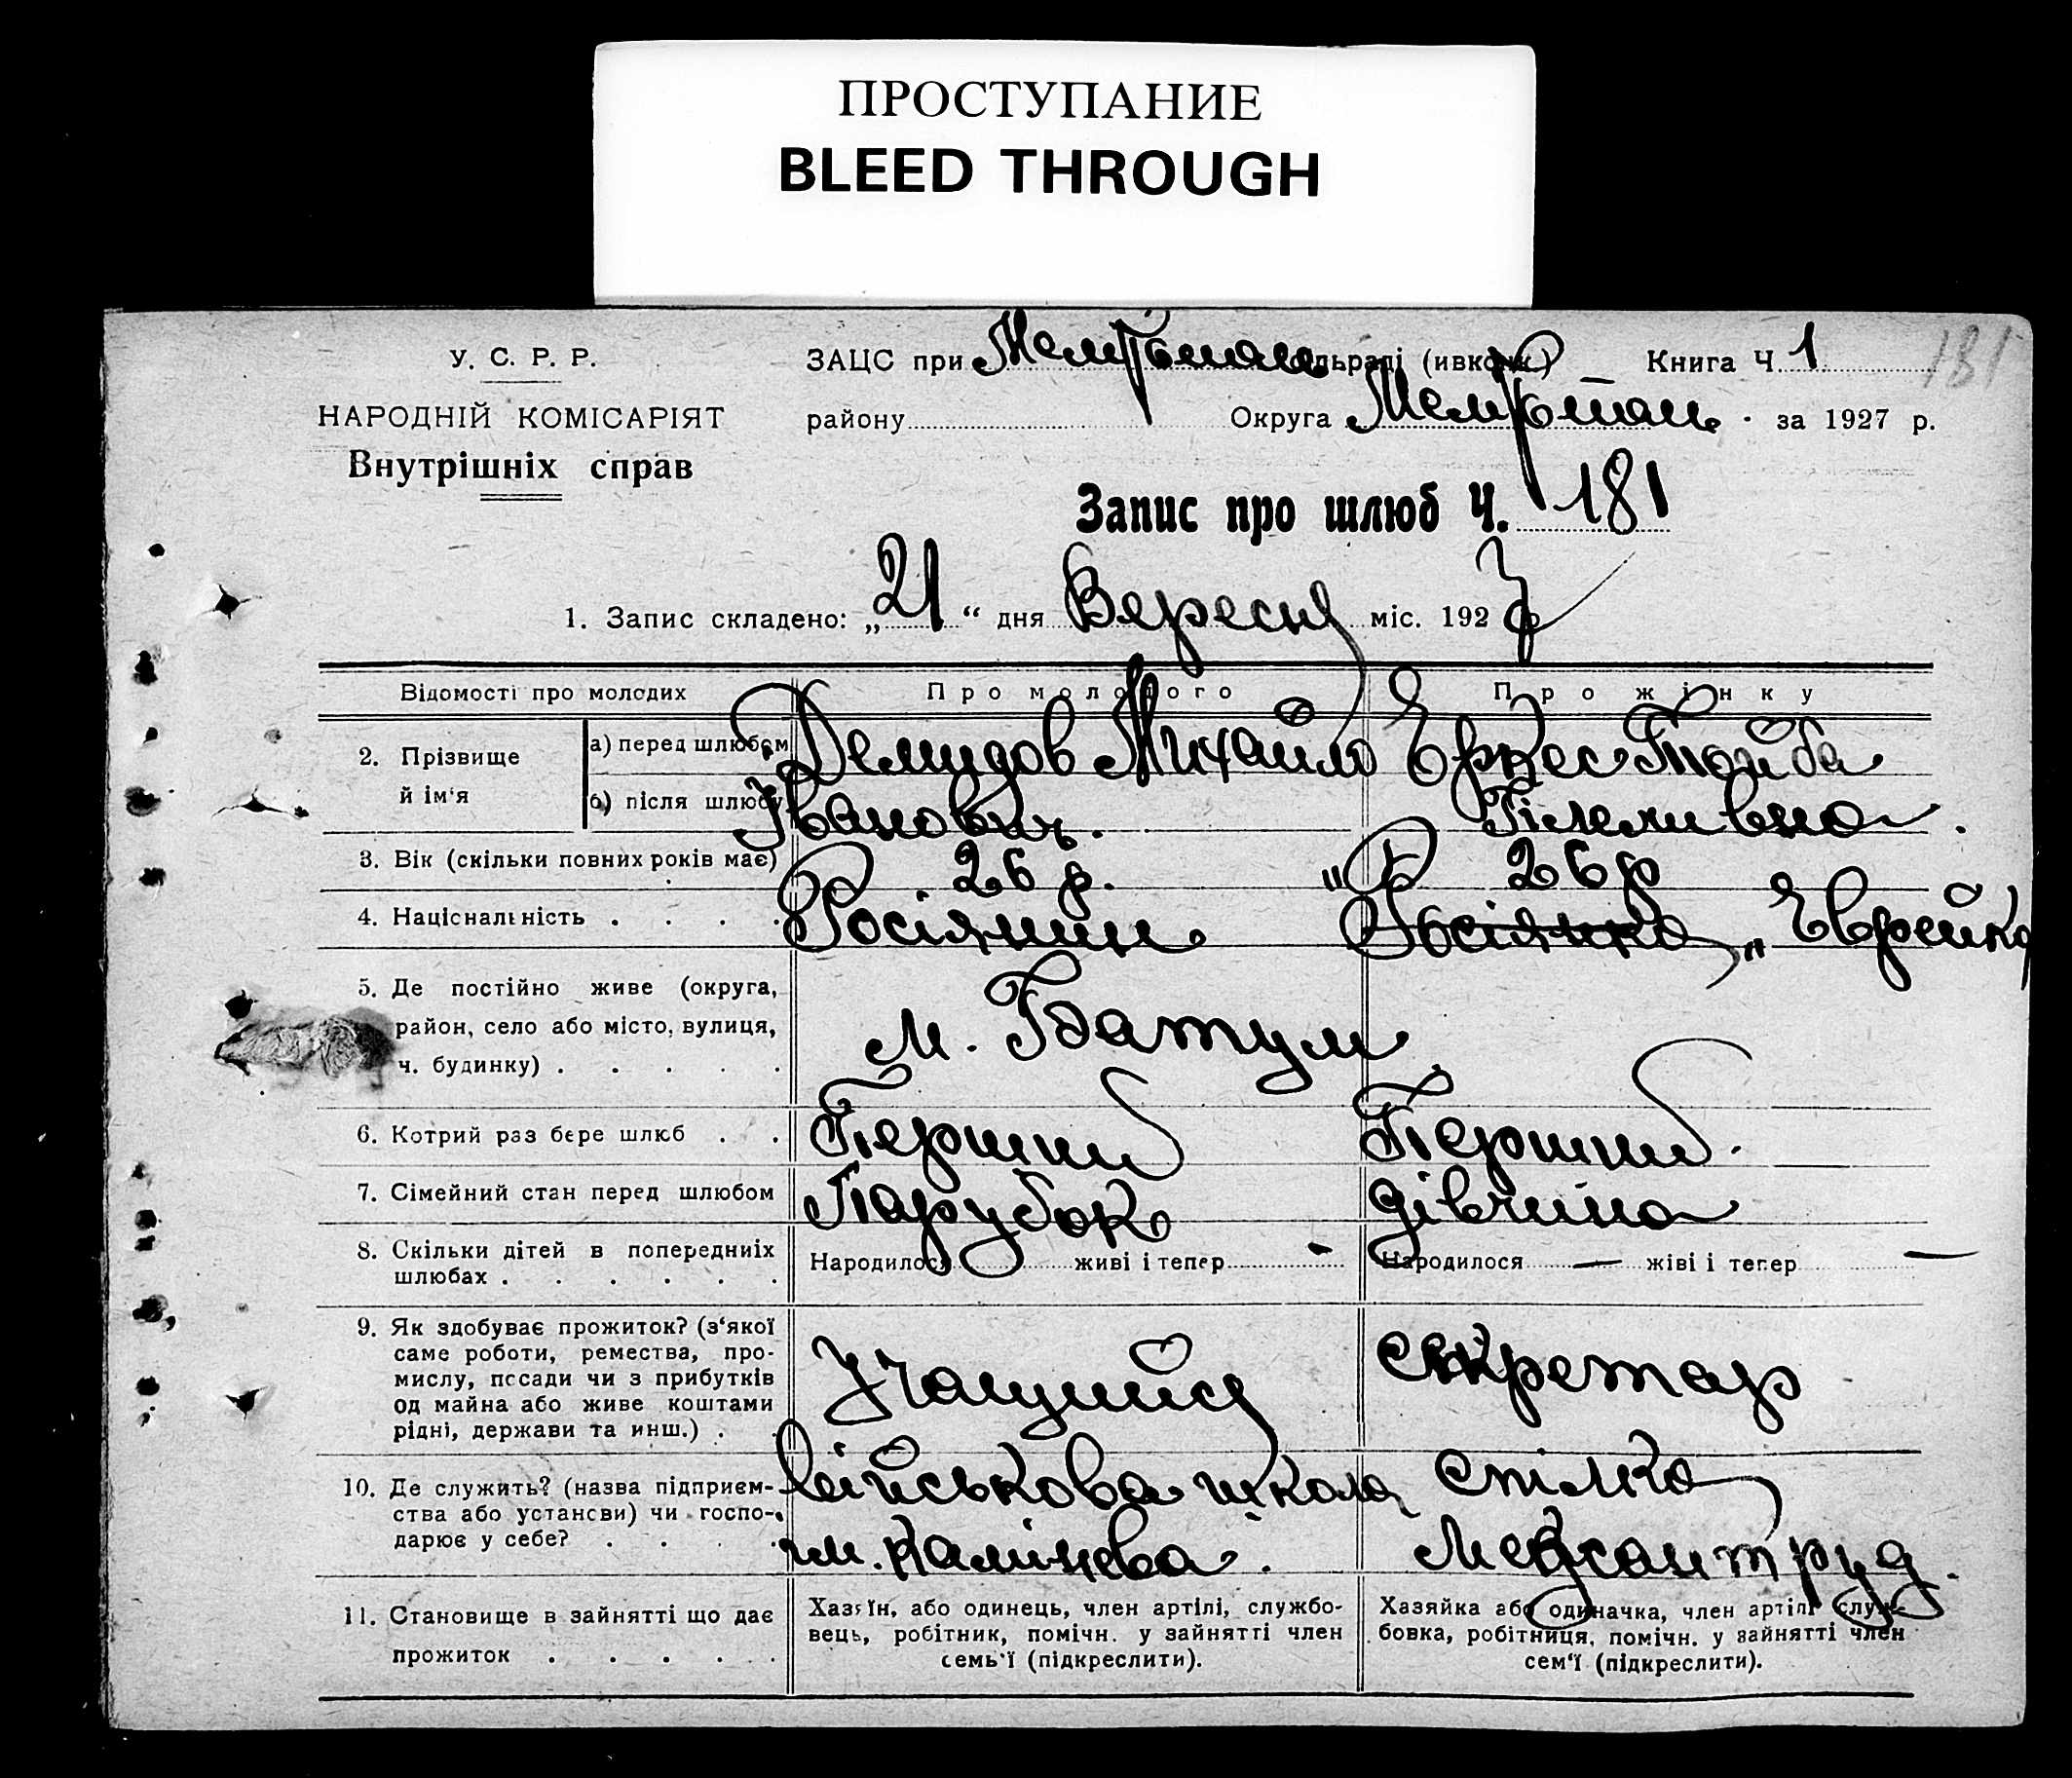 ПРОСТУПАНИЕ
BLEED THROUGH
У. С. Р. Р.
ЗАЦС при Мелітопол Книга Ч. 1
181
НАРОДНІЙ КОМІСАРІЯТ
району Округа Мелітопол. за 1927 р.
Внутрішніх справ
Запис про шлюб Ч. 181
1. Запис складено: „21“ дня Вересня міс. 1927
Відомості про молодих Про молодого Про жінку
2. Прізвище й ім'я
а) перед шлюбом Демидов Михайло
б) після шлюбу Іванович.
3. Вік (скільки повних років має) 26 р. 26 р
4. Національність Росіянин „Росіянка„ Еврейка
5. Де постійно живе (округа,
район, село або місто, вулиця,
ч. будинку) м. Батум
6. Котрий раз бере шлюб Перший Перший.
7. Сімейний стан перед шлюбом Парубок дівчина
8. Скільки дітей в попередниіх
шлюбах Народилося живі і тепер - Народилося — жіві і тепер —
9. Як здобуває прожиток? (з'якої
саме роботи, ремества, про-
мислу, посади чи з прибутків
од майна або живе коштами
рідні, держави та инш.) Учащийся секретар
10. Де служить? (назва підприєм-
ства або установи) чи госпо-
дарює у себе?
військова школа спілка
ім. Калінева. Медсантруд.
11. Становище в зайнятті що дає
прожиток
Хазяїн, або одинець, член артілі, службо-
вець, робітник, помічн. у зайнятті член
семь'ї (підкреслити).
Хазяйка або одиначка, член артілі служ-
бовка, робітниця, помічн. у зайнятті член
сем'ї (підкреслити).